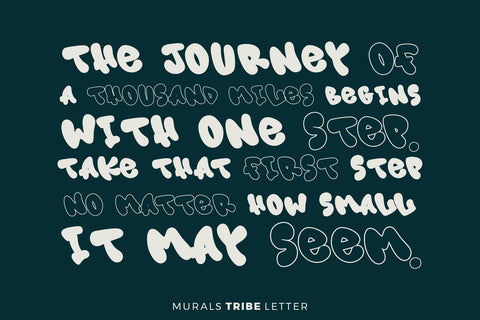 THE JOURNEY OF
A THOUSAND MILES BEGINS
WITH ONE STEP.
TAKE THAT FIRST STEP
NO MATTER HOW SMALL
IT MAY SEEM.
MURALS TRIBE LETTER